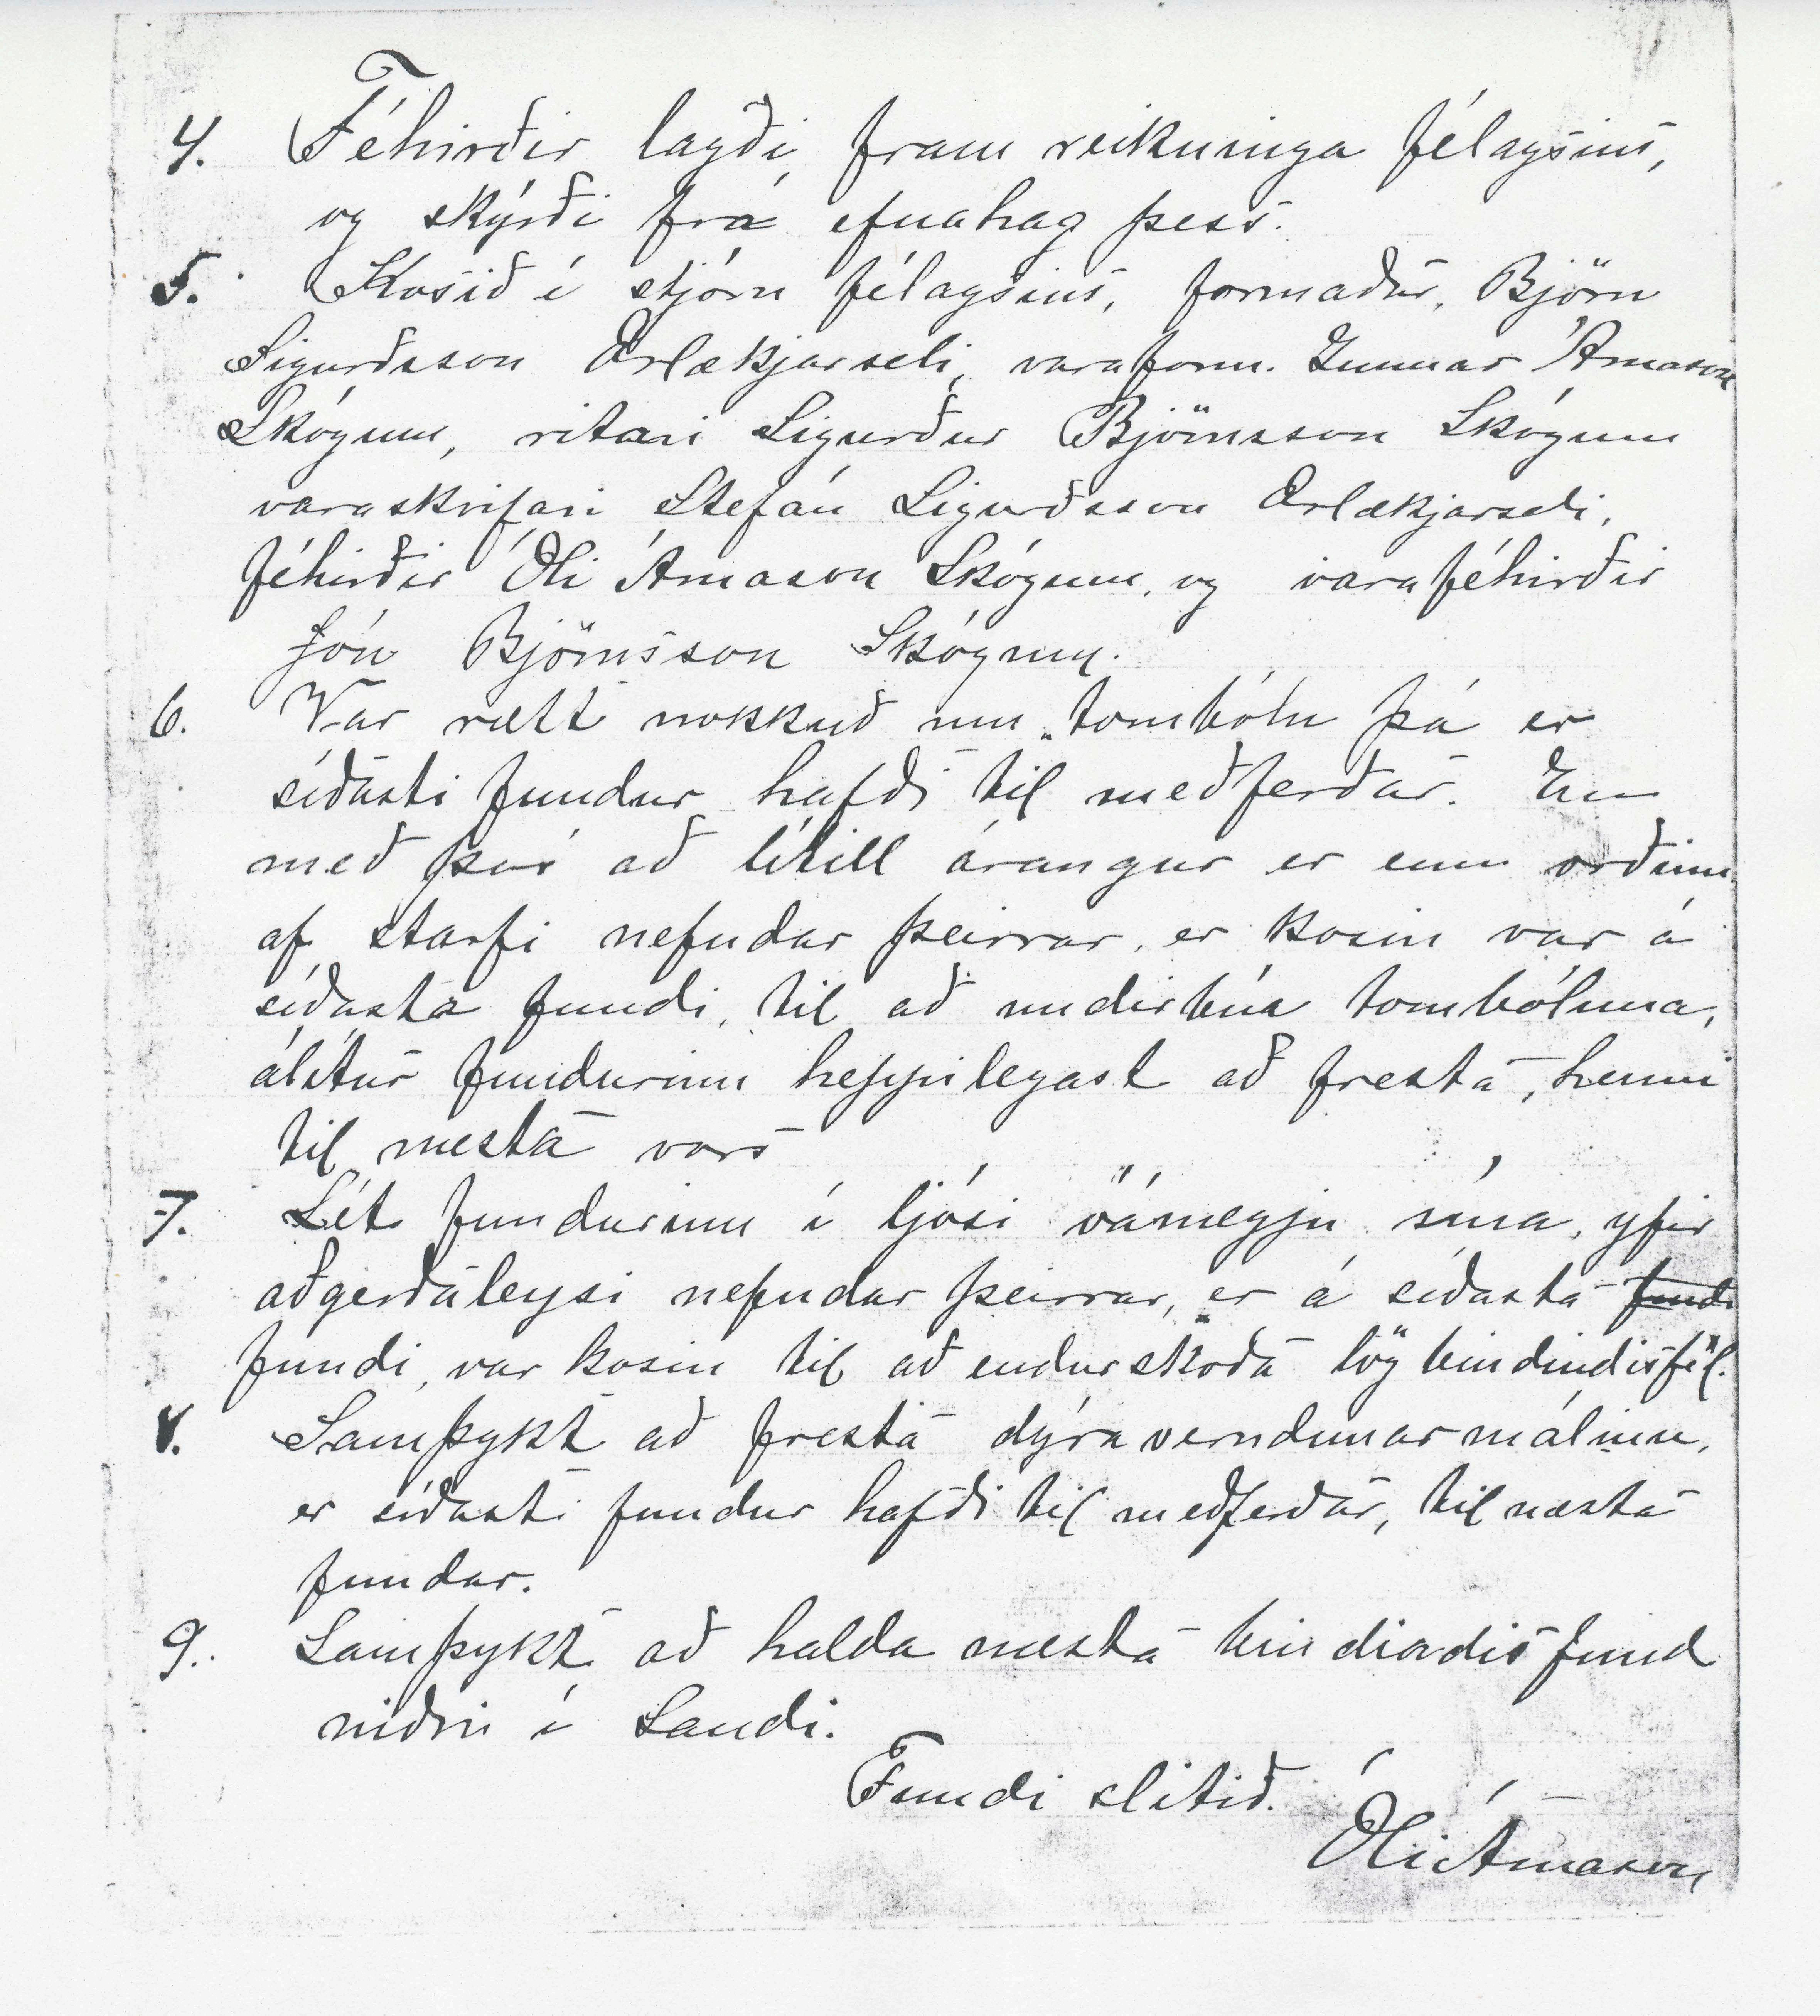 4. Féhirðir lagði, fram reikninga félagsins,
og skýrði frá efnahag þess.
5. Kosið í stjórn félagsins, formaður, Björn
Sigurðsson Ærlækjarseli, varaform. Gunnar Árnason
Skógum, ritari Sigurður Björnsson Skógum
varaskrifari Stefán Sigurðsson Ærlækjarseli,
féhirðir Óli Árnason Skógum, og varaféhirðir
Jón Björnsson Skógum.
6. Var rætt nokkuð um „tombólu þá er
síðasti fundur hafði til meðferðar. En
með því að lítill árangur er enn orðinn
af starfi nefndar þeirrar, er kosin var á
síðasta fundi, til að undirbúa tombóluna,
álítur fundurinn heppilegast að fresta, henni
til næsta vors
7. Lét fundurinn í ljósi óánægju sína, yfir
aðgerðaleysi nefndar þeirrar, er á síðasta fundi
fundi, var kosin til að endurskoða lög bindindisfél.
8. Samþykt að fresta dýraverndunarmálinu,
er síðasti fundur hafði til meðferðar, til næsta
fundar.
9. Samþykt að halda næsta bindindisfund
niðri í Sandi.
Fundi slitið.
Óli Árnason